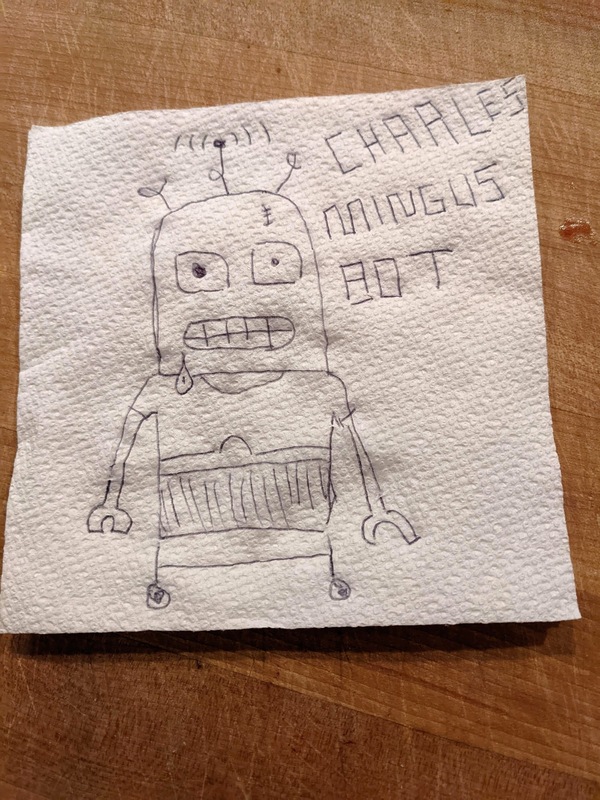 CHARLES
MINGUS
BOT